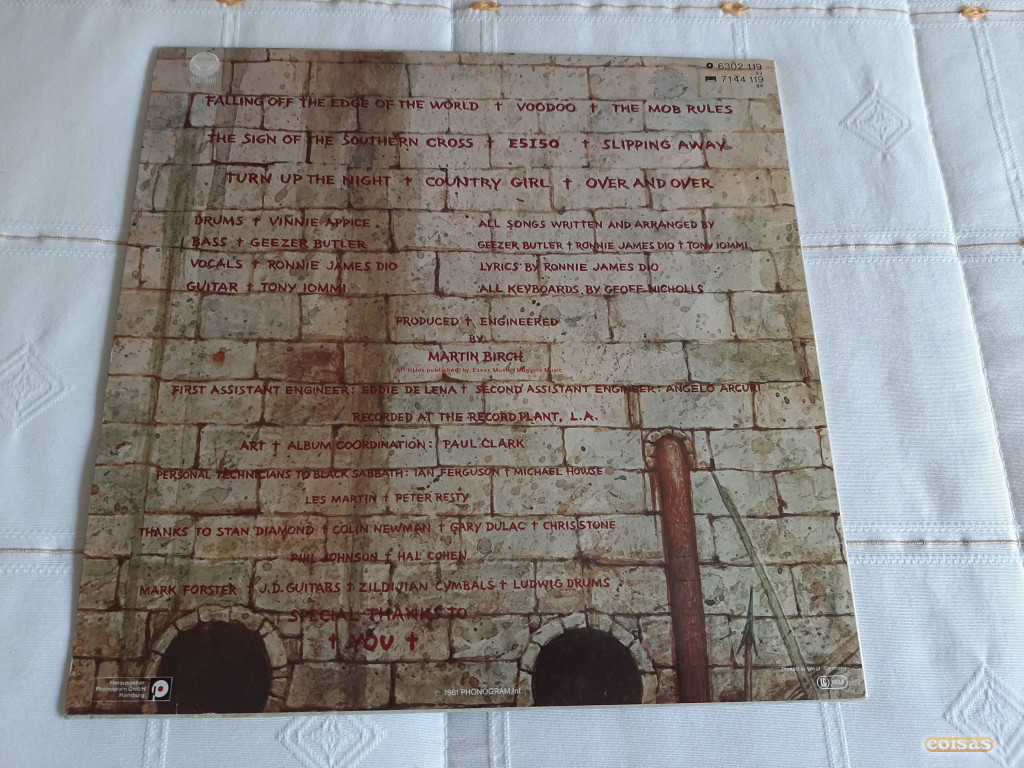 6302 119
7144 119
FALLING OFF THE EDGE OF THE WORLD † VOODOO † THE MOB RULES
THE SIGN OF THE SOUTHERN CROSS † E5150 † SLIPPING AWAY
TURN UP THE NIGHT † COUNTRY GIRL † OVER AND OVER
DRUMS † VINNIE APPICE
BASS † GEEZER BUTLER
VOCALS † RONNIE JAMES DIO
GUITAR † TONY IOMMI
ALL SONGS WRITTEN AND ARRANGED BY
GEEZER BUTLER † RONNIE JAMES DIO † TONY IOMMI
LYRICS BY RONNIE JAMES DIO
ALL KEYBOARDS BY GEOFF NICHOLLS
PRODUCED † ENGINEERED
BY
MARTIN BIRCH
All titles published by Essex Music
FIRST ASSISTANT ENGINEER: EDDIE DE LENA † SECOND ASSISTANT ENGINEER: ANGELO ARCURI
RECORDED AT THE RECORD PLANT, L.A.
ART † ALBUM COORDINATION: PAUL CLARK
PERSONAL TECHNICIANS TO BLACK SABBATH: IAN FERGUSON † MICHAEL HOWSE
LES MARTIN † PETER RESTY
THANKS TO STAN DIAMOND † COLIN NEWMAN † GARY DULAC † CHRIS STONE
PHIL JOHNSON † HAL COHEN
MARK FORSTER † J.D. GUITARS † ZILDIJIAN CYMBALS † LUDWIG DRUMS
SPECIAL THANKS TO
† YOU †
Herausgeber:
Phonogram GmbH
Hamburg
© 1981 PHONOGRAM Int.
Printed in West Germany
coisas